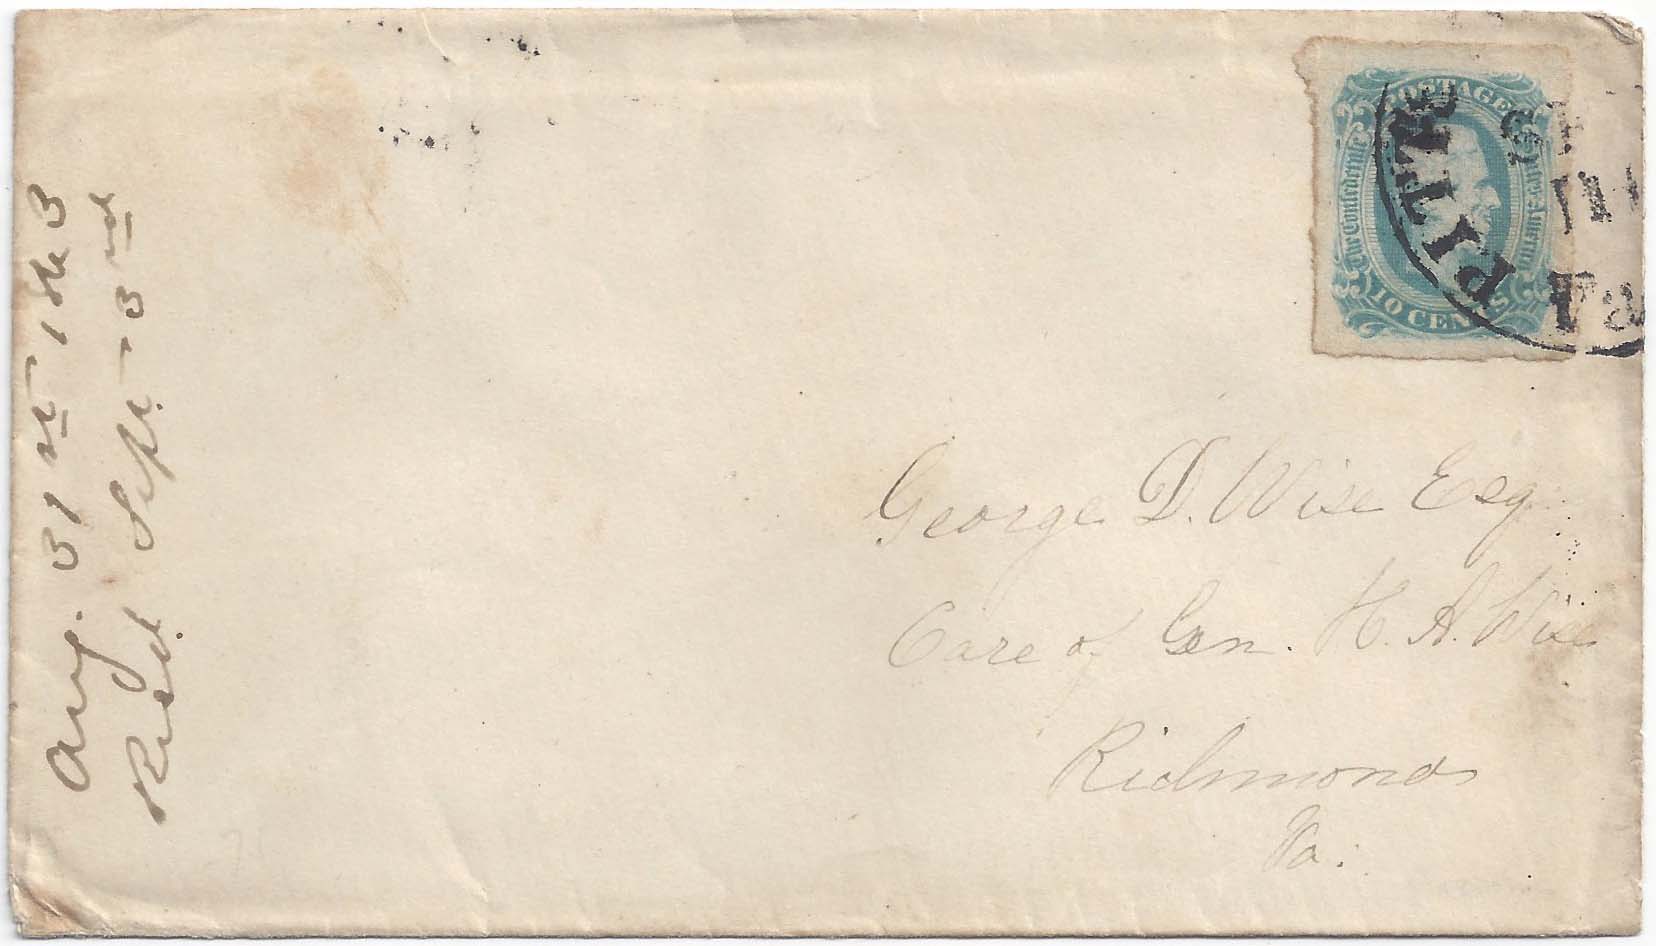 Aug. 31st 1863
Recd. Sept. 3rd
POSTAGE
The Confederate States of America
10 CENTS
PITTS
Va
George D. Wise Esq
Care of Gen. H. A. Wise
Richmond
Va.